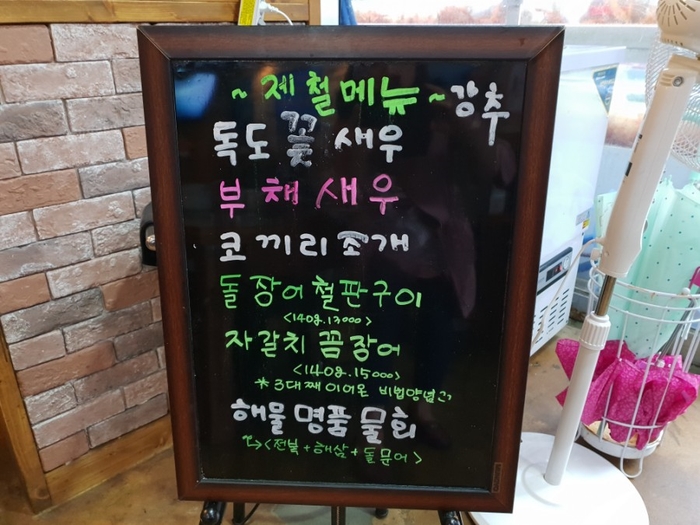 ~ 제철메뉴 ~ 강추
독도 꽃 새우
부채새우
코끼리조개
돌장어철판구이
<140g. 13000>
자갈치 꼼장어
<140g. 15000>
* 3대째 이어온 비법양념
해물명품물회
↳ <전복 + 해삼 + 돌문어>